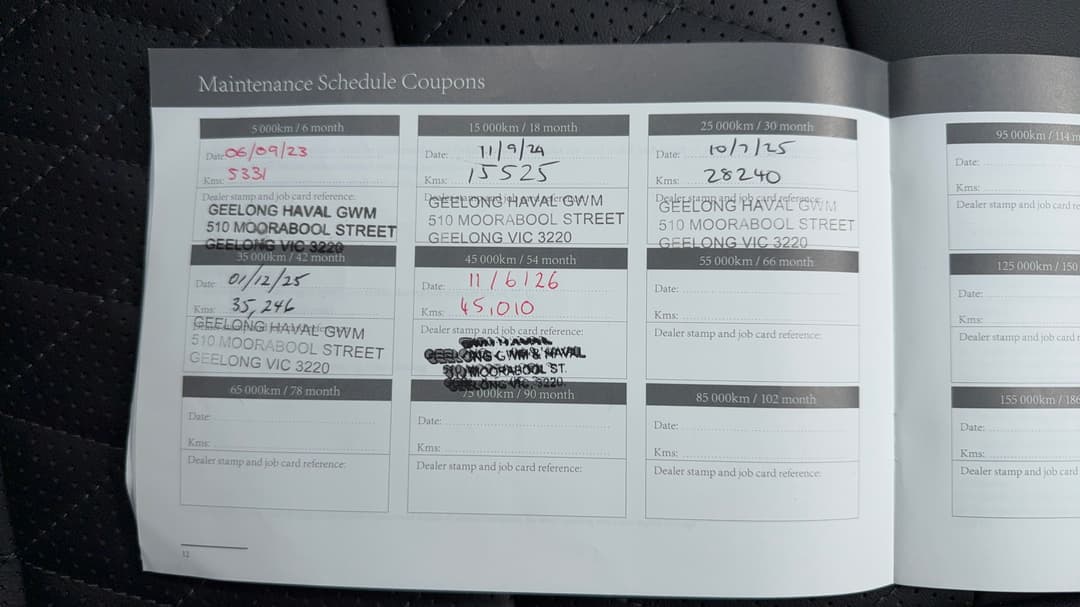 Maintenance Schedule Coupons
5 000km / 6 month
Date: 06/09/23
Kms: 5331
Dealer stamp and job card reference:
GEELONG HAVAL GWM
510 MOORABOOL STREET
GEELONG VIC 3220
15 000km / 18 month
Date: 11/9/24
Kms: 15525
Dealer stamp and job card reference:
GEELONG HAVAL GWM
510 MOORABOOL STREET
GEELONG VIC 3220
25 000km / 30 month
Date: 10/7/25
Kms: 28240
Dealer stamp and job card reference:
GEELONG HAVAL GWM
510 MOORABOOL STREET
GEELONG VIC 3220
35 000km / 42 month
Date: 01/12/25
Kms: 35,246
GEELONG HAVAL GWM
510 MOORABOOL STREET
GEELONG VIC 3220
45 000km / 54 month
Date: 11/6/26
Kms: 45,010
Dealer stamp and job card reference:
GEELONG GWM & HAVAL
510 MOORABOOL ST.
GEELONG VIC, 3220.
55 000km / 66 month
Date:
Kms:
Dealer stamp and job card reference:
65 000km / 78 month
Date:
Kms:
Dealer stamp and job card reference:
75 000km / 90 month
Date:
Kms:
Dealer stamp and job card reference:
85 000km / 102 month
Date:
Kms:
Dealer stamp and job card reference:
12
95 000km / 114 m
Date:
Kms:
Dealer stamp and job card re
125 000km / 150
Date:
Kms:
Dealer stamp and job card r
155 000km / 186
Date:
Kms:
Dealer stamp and job card